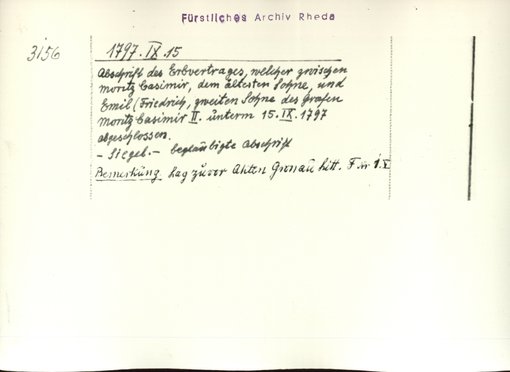 Fürstliches Archiv Rheda
3156
1797. IX. 15
Abschrift des Erbvertrages, welcher zwischen
Moritz Casimir, dem ältesten Sohne, und
Emil (Friedrich, zweiten Sohne des Grafen
Moritz Casimir II. unterm 15. IX. 1797
abgeschlossen.
- Siegel. - beglaubigte Abschrift
Bemerkung Lag zuvor Akten Gronau Litt. F. nr 1.